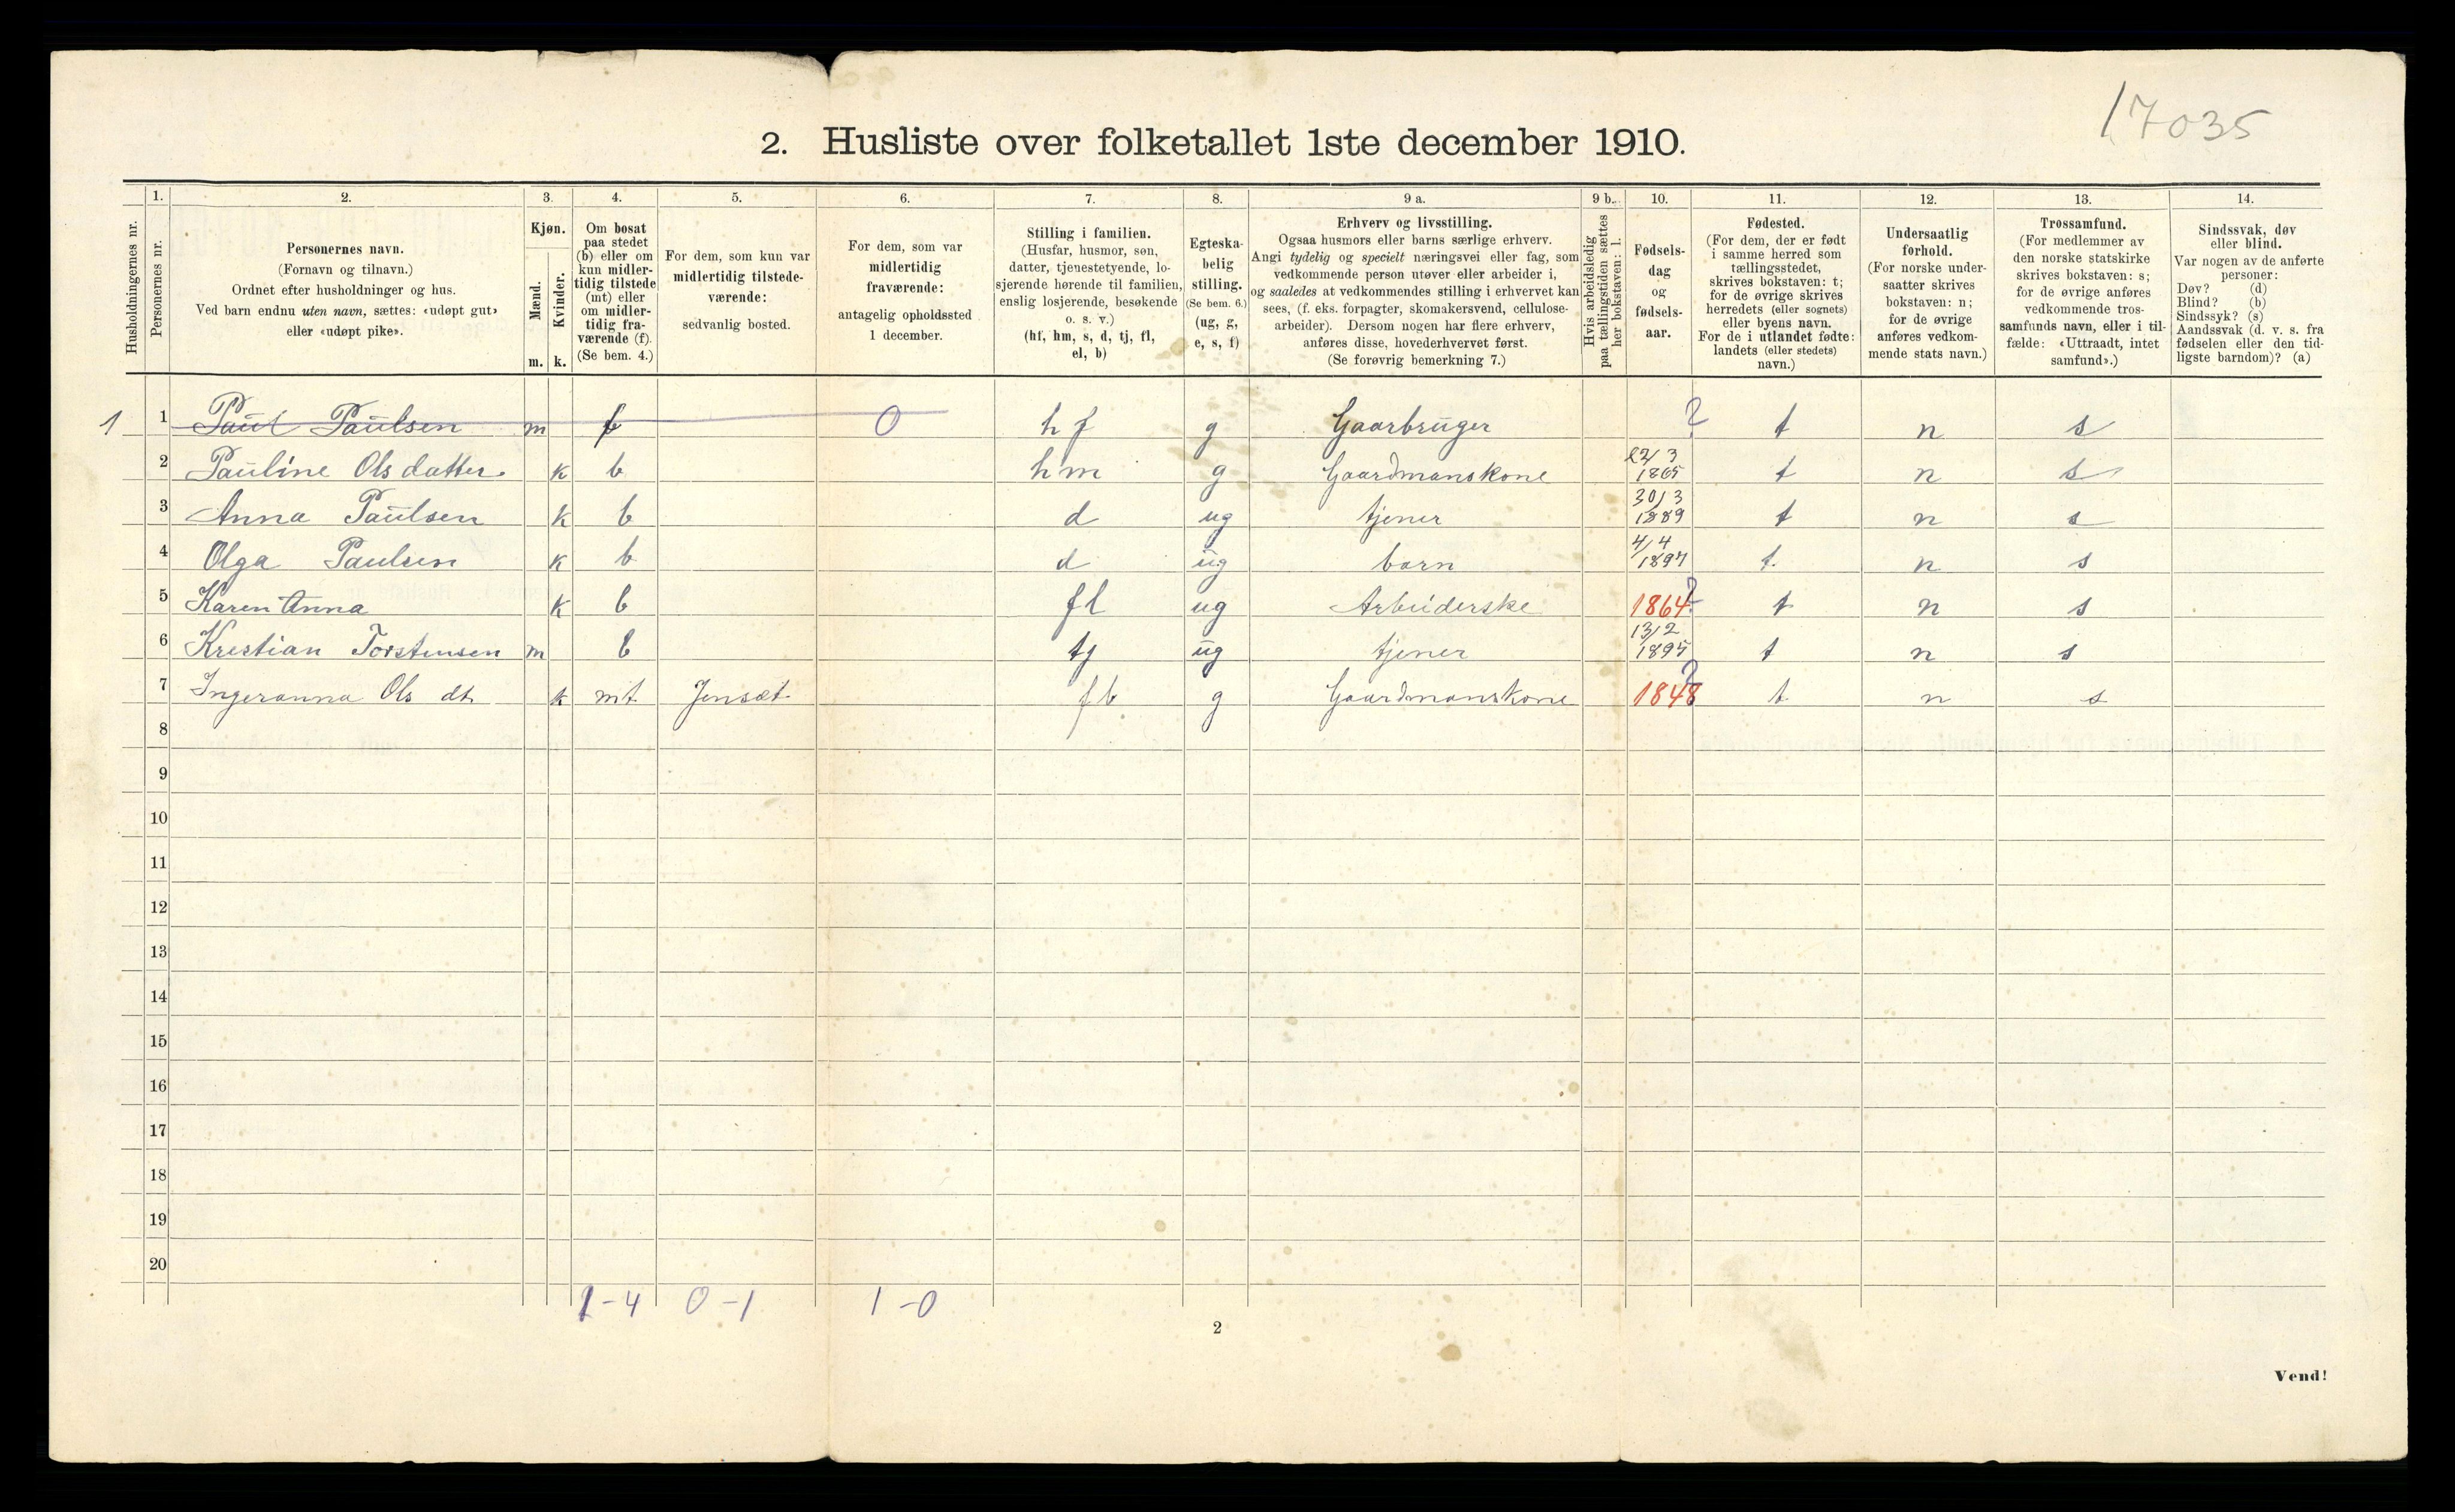 17035
2. Husliste over folketallet 1ste december 1910.
Husholdningernes nr.
1.
Personernes nr.
2.
Personernes navn.
(Fornavn og tilnavn.)
Ordnet efter husholdninger og hus.
Ved barn endnu uten navn, sættes: «udøpt gut»
eller «udøpt pike».
3.
Kjøn.
Mænd.
Kvinder.
m. k.
4.
Om bosat
paa stedet
(b) eller om
kun midler-
tidig tilstede
(mt) eller
om midler-
tidig fra-
værende (f).
(Se bem. 4.)
5.
For dem, som kun var
midlertidig tilstede-
værende:
sedvanlig bosted.
6.
For dem, som var
midlertidig
fraværende:
antagelig opholdssted
1 december.
7.
Stilling i familien.
(Husfar, husmor, søn,
datter, tjenestetyende, lo-
sjerende hørende til familien,
enslig losjerende, besøkende
o. s. v.)
(hf, hm, s, d, tj, fl,
el, b)
8.
Egteska-
belig
stilling.
(Se bem. 6.)
(ug, g,
e, s, f)
9 a.
Erhverv og livsstilling.
Ogsaa husmors eller barns særlige erhverv.
Angi tydelig og specielt næringsvei eller fag, som
vedkommende person utøver eller arbeider i,
og saaledes at vedkommendes stilling i erhvervet kan
sees, (f. eks. forpagter, skomakersvend, cellulose-
arbeider). Dersom nogen har flere erhverv,
anføres disse, hovederhvervet først.
(Se forøvrig bemerkning 7.)
9 b.
Hvis arbeidsledig
paa tællingstiden sættes
her bokstaven: l.
10.
Fødsels-
dag
og
fødsels-
aar.
11.
Fødested.
(For dem, der er født
i samme herred som
tællingsstedet,
skrives bokstaven: t;
for de øvrige skrives
herredets (eller sognets)
eller byens navn.
For de i utlandet fødte:
landets (eller stedets)
navn.)
12.
Undersaatlig
forhold.
(For norske under-
saatter skrives
bokstaven: n;
for de øvrige
anføres vedkom-
mende stats navn.)
13.
Trossamfund.
(For medlemmer av
den norske statskirke
skrives bokstaven: s;
for de øvrige anføres
vedkommende tros-
samfunds navn, eller i til-
fælde: «Uttraadt, intet
samfund».)
14.
Sindssvak, døv
eller blind.
Var nogen av de anførte
personer:
Døv? (d)
Blind? (b)
Sindssyk? (s)
Aandssvak (d. v. s. fra
fødselen eller den tid-
ligste barndom)? (a)
1 1 Paul Paulsen m f 0 hf g Gaarbruger ? t n s
2 Pauline Olsdatter k b hm g Gaardmanskone 22/3 1865 t n s
3 Anna Paulsen k b d ug tjener 30/3 1889 t n s
4 Olga Paulsen k b d ug barn 4/4 1897 t. n s
5 Karen Anna k b fl ug Arbeiderske 1864 ? t n s
6 Krestian Torstensen m b tj ug tjener 13/2 1895 t n s
7 Ingeranna Ols dt k mt Jensæt fb g Gaardmanskone 1848 ? t n s
8
9
10
11
12
13
14
15
16
17
18
19
20
1-4 0-1 1-0
2
Vend!